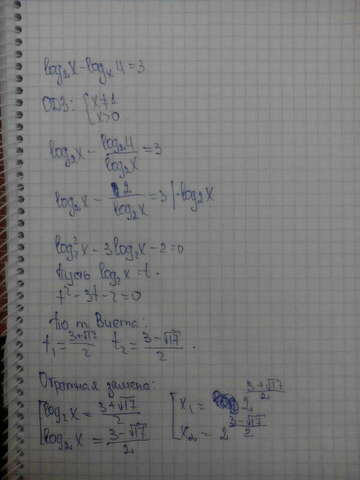 log₂x - logₓ4 = 3
ОДЗ: { x ≠ 1
x > 0
log₂x - log₂4/log₂x = 3
log₂x - 2/log₂x = 3 | ·log₂x
log₂²x - 3log₂x - 2 = 0
Пусть log₂x = t.
t² - 3t - 2 = 0
По т. Виета:
t₁ = (3+√17)/2 t₂ = (3-√17)/2.
Обратная замена:
[ log₂x = (3+√17)/2 [ x₁ = 2^((3+√17)/2)
log₂x = (3-√17)/2 x₂ = 2^((3-√17)/2)